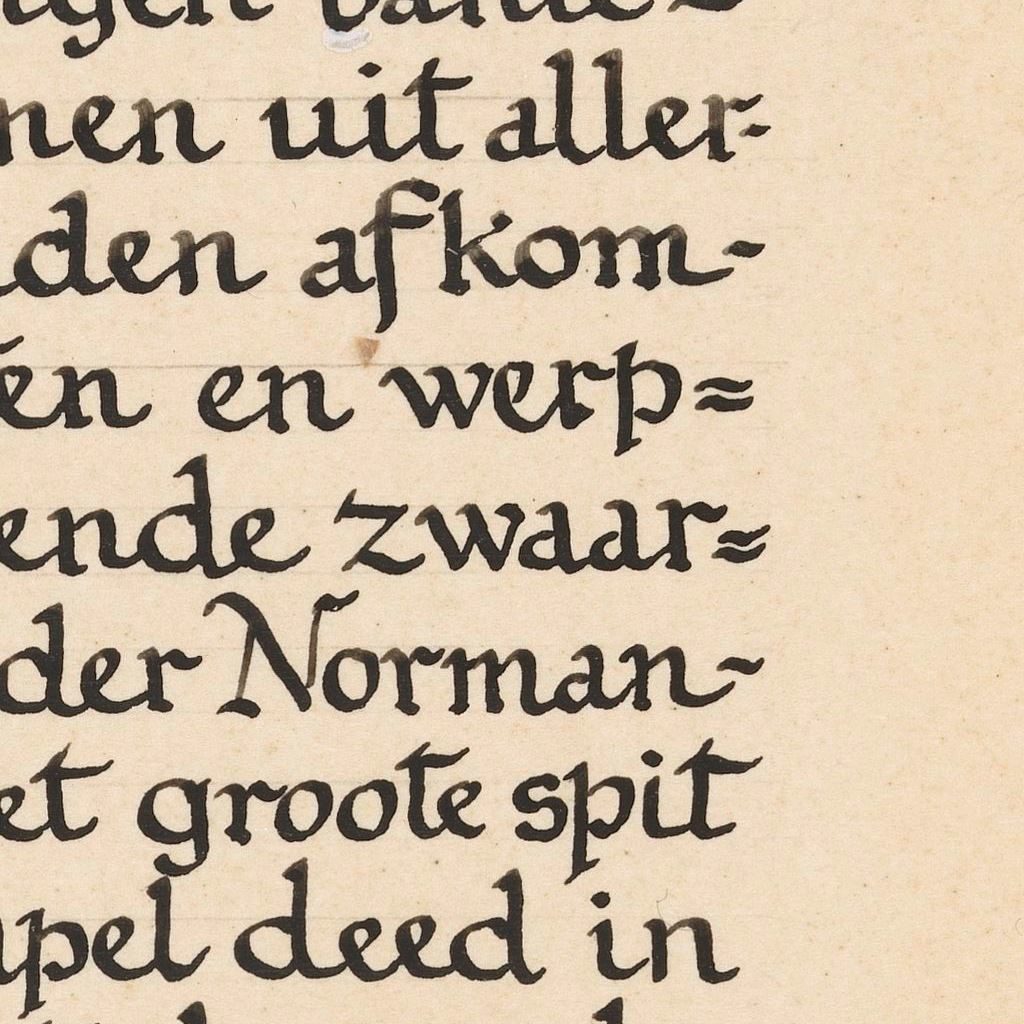 nen uit aller-
den afkom-
én en werp=
ende zwaar=
der Norman-
et groote spit
pel deed in